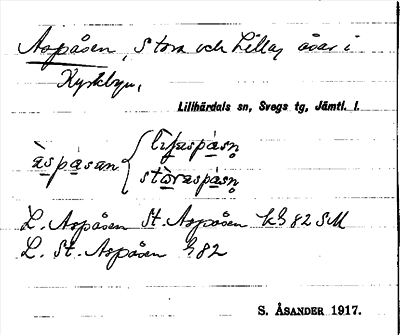 Aspåsen, Stora och Lilla, åsar i
Kyrkbyn,
Lillhärdals sn, Svegs tg, Jämtl. l.
L. Aspåsen St. Aspåsen 82 SM
L. St. Aspåsen 82
S. ÅSANDER 1917.